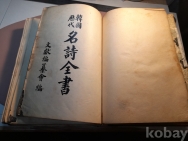 韓國
歷代
名詩全書
文献編纂會 編
kobay